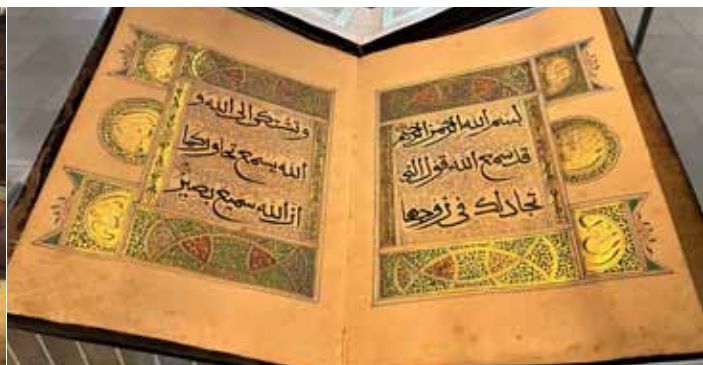 بسم الله الرحمن الرحيم
قد سمع الله قول التي
تجادلك في زوجها
وتشتكي الى الله و
الله يسمع تحاوركما
ان الله سميع بصير